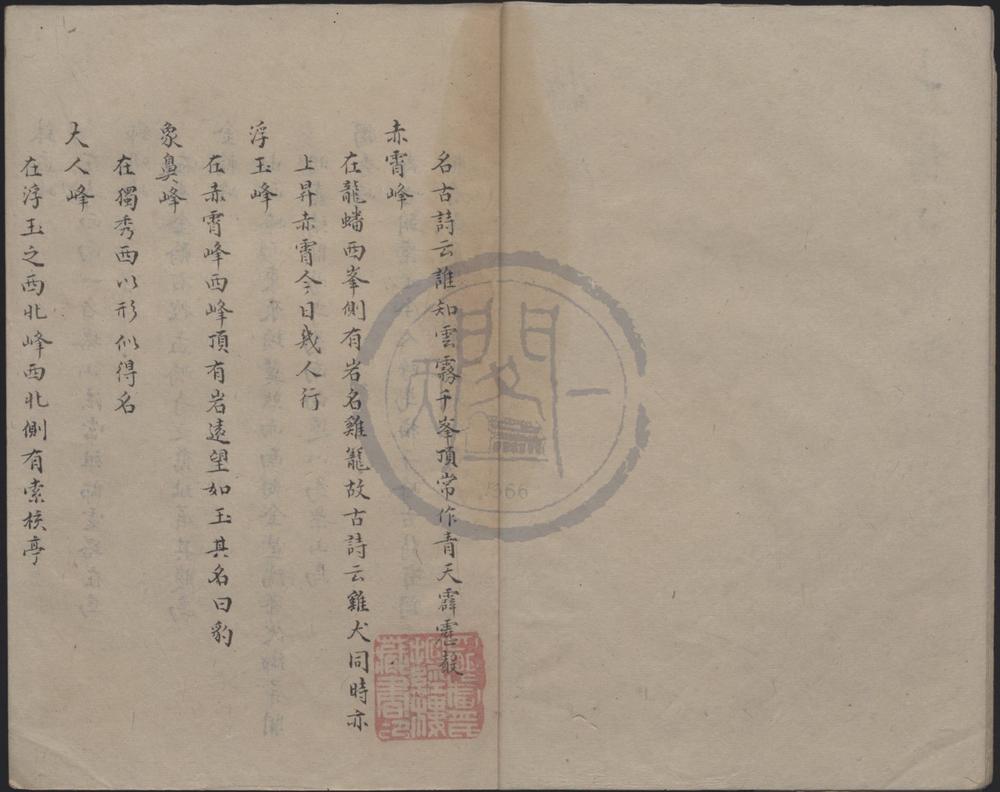 名古詩云誰知雲霧千峯頂常作青天霹靂聲
赤霄峰
在龍蟠西峯側有岩名雞籠故古詩云雞犬同時亦
上昇赤霄今日幾人行
浮玉峰
在赤霄峰西峰頂有岩遠望如玉其名曰豹
象鼻峰
在獨秀西以形似得名
大人峰
在浮玉之西北峰西北側有索核亭
天一閣
1566
抱經樓
藏書印